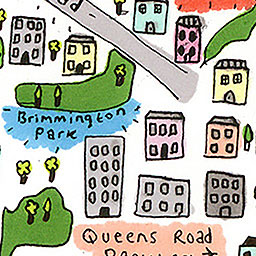 Brimmington
Park
Queens Road